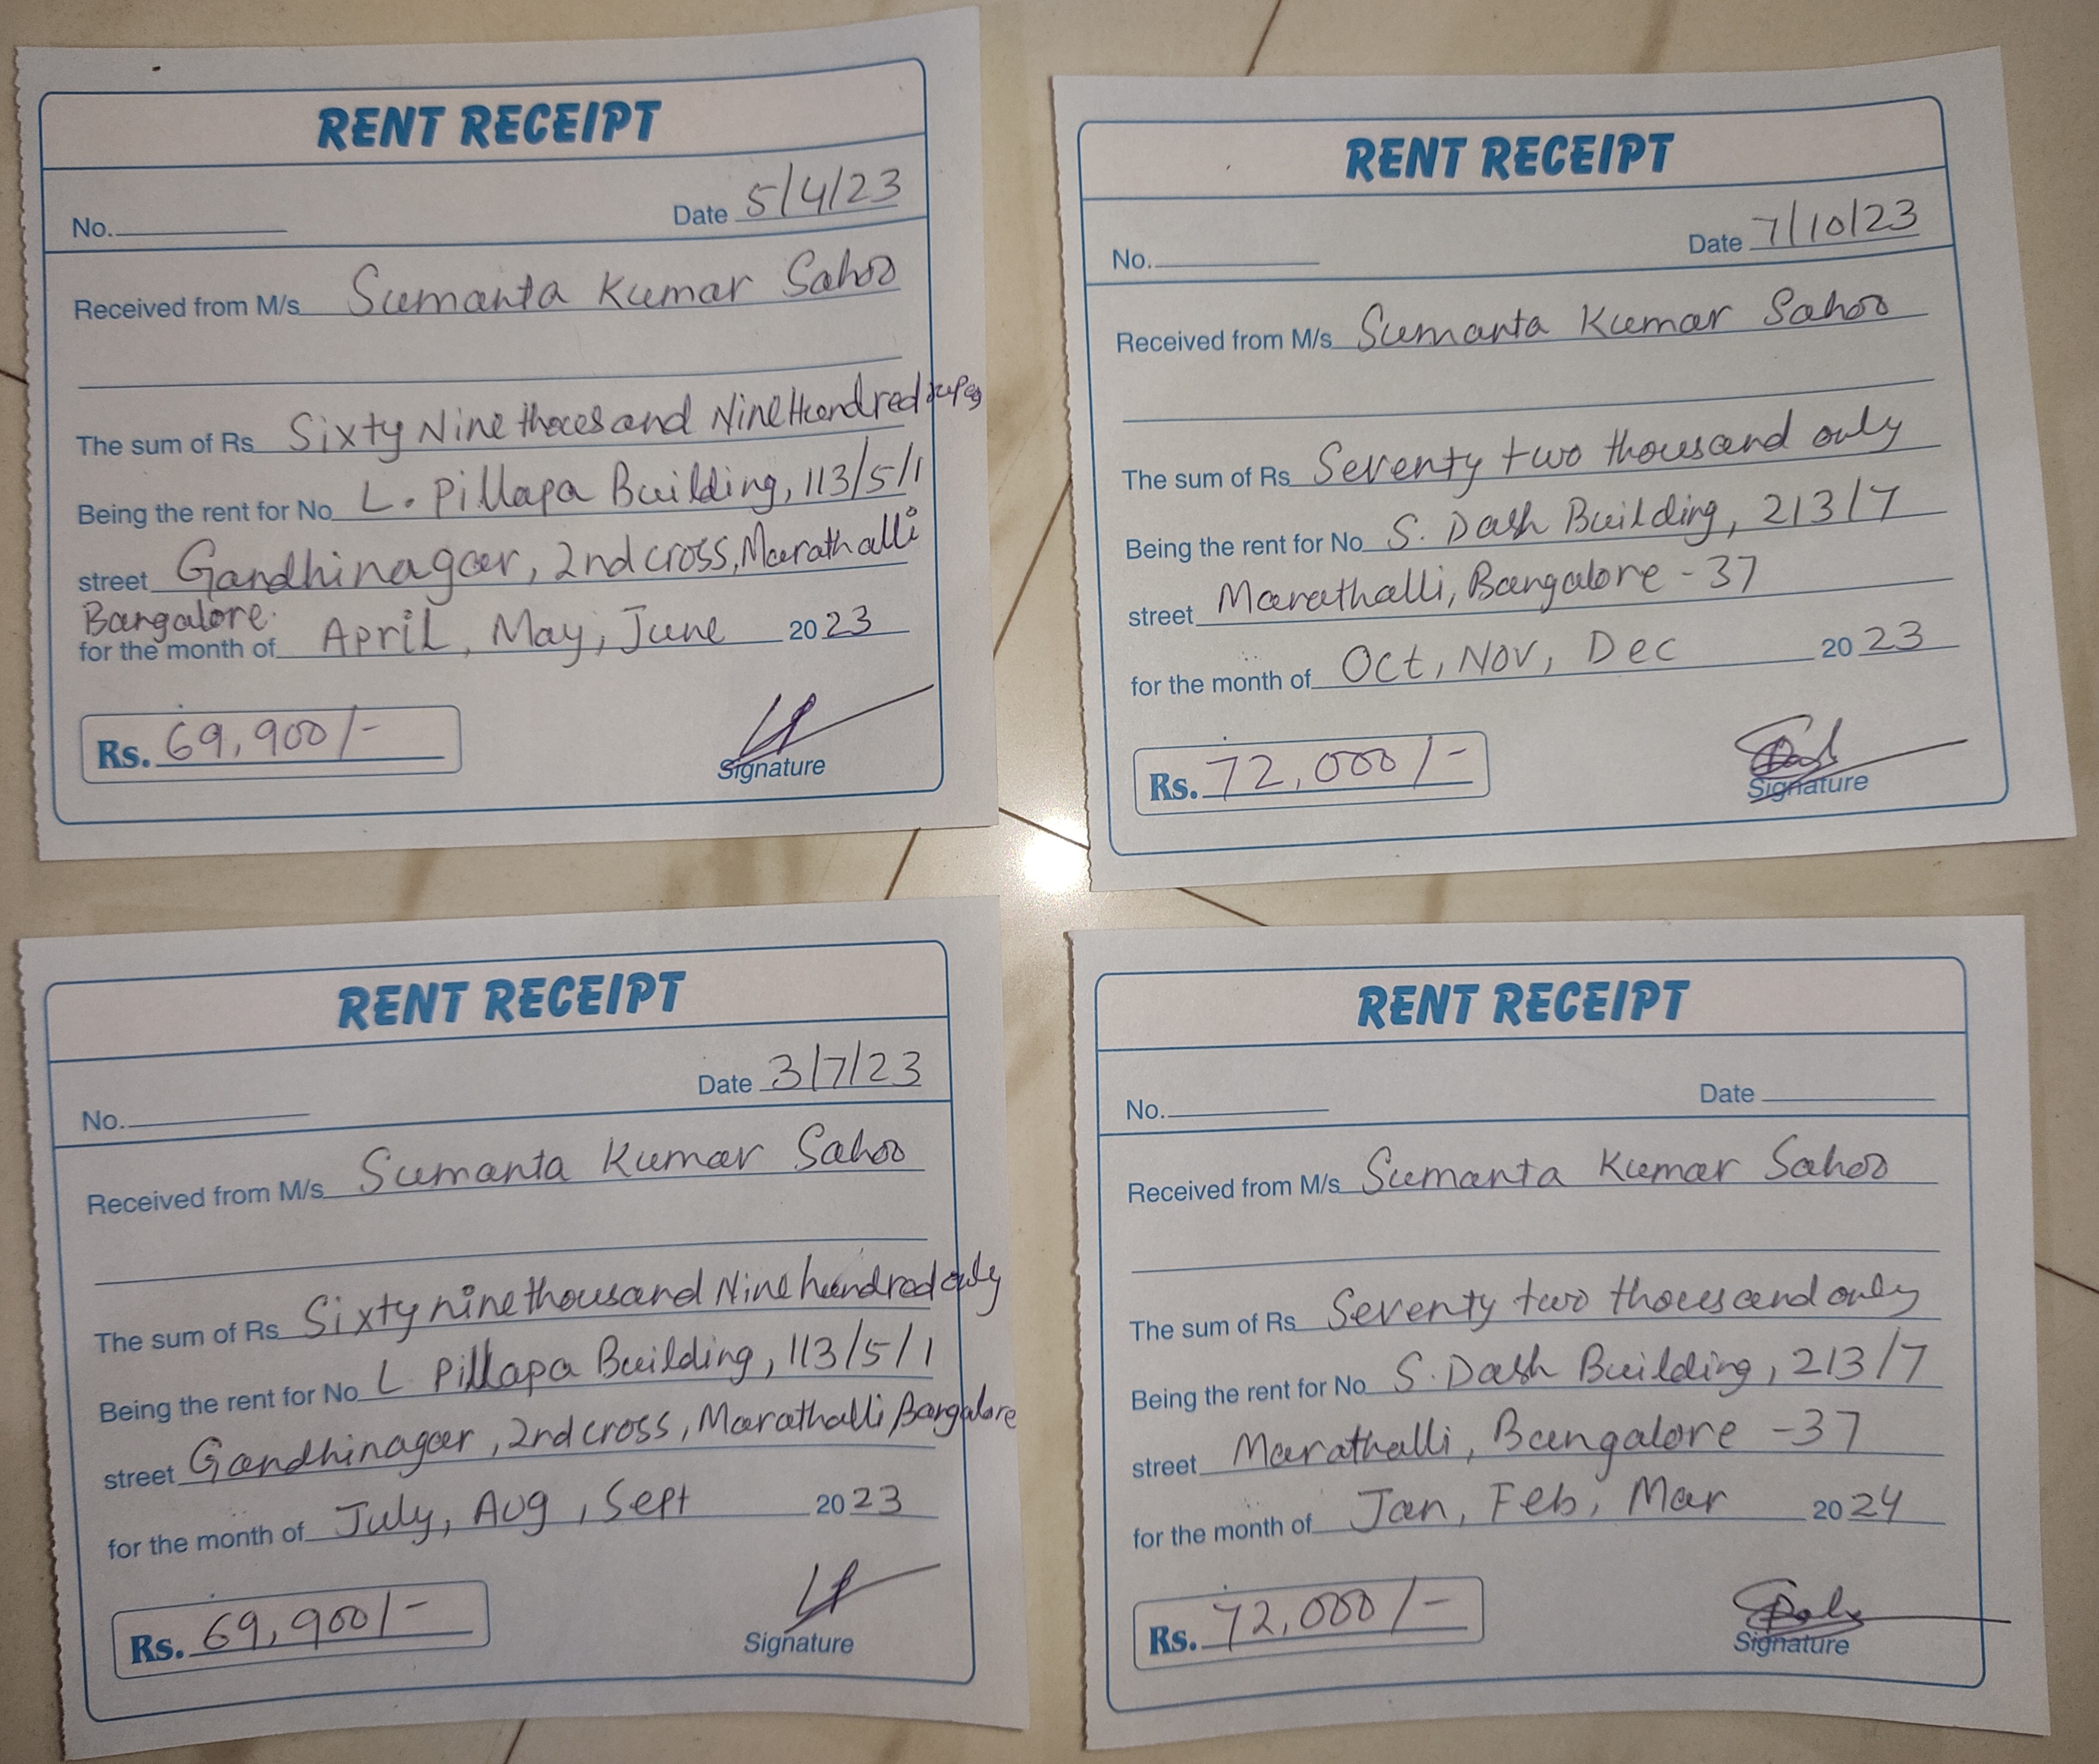 RENT RECEIPT
No. Date 5/4/23
Received from M/s Sumanta Kumar Sahoo
The sum of Rs Sixty Nine thousand Nine Hundred rupees
Being the rent for No L. Pillapa Building, 113/5/1
street Gandhinagar, 2nd cross, Marathalli
Bangalore.
for the month of April, May, June 2023
Rs. 69,900/-
Signature
RENT RECEIPT
No. Date 7/10/23
Received from M/s Sumanta Kumar Sahoo
The sum of Rs Seventy two thousand only
Being the rent for No S. Dash Building, 213/7
street Marathalli, Bangalore - 37
for the month of Oct, Nov, Dec 2023
Rs. 72,000/-
Signature
RENT RECEIPT
No. Date 3/7/23
Received from M/s Sumanta Kumar Sahoo
The sum of Rs Sixty nine thousand Nine hundred only
Being the rent for No L Pillapa Building, 113/5/1
street Gandhinagar, 2nd cross, Marathalli Bangalore
for the month of July, Aug, Sept 2023
Rs. 69,900/-
Signature
RENT RECEIPT
No. Date
Received from M/s Sumanta Kumar Sahoo
The sum of Rs Seventy two thousand only
Being the rent for No S. Dash Building, 213/7
street Marathalli, Bangalore - 37
for the month of Jan, Feb, Mar 2024
Rs. 72,000/-
Signature